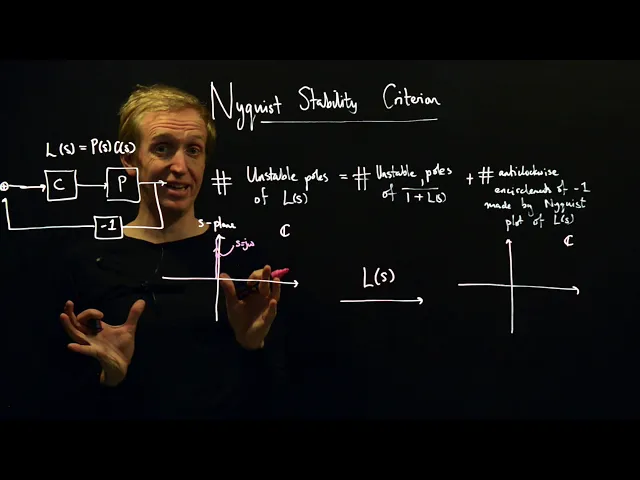 Nyquist Stability Criterion
L(s) = P(s)C(s)
C
P
-1
# Unstable poles of L(s) = # Unstable poles of 1 / 1 + L(s) + # anticlockwise
encirclements of -1
made by Nyquist
plot of L(s)
s-plane
s=jω
ℂ
L(s)
ℂ